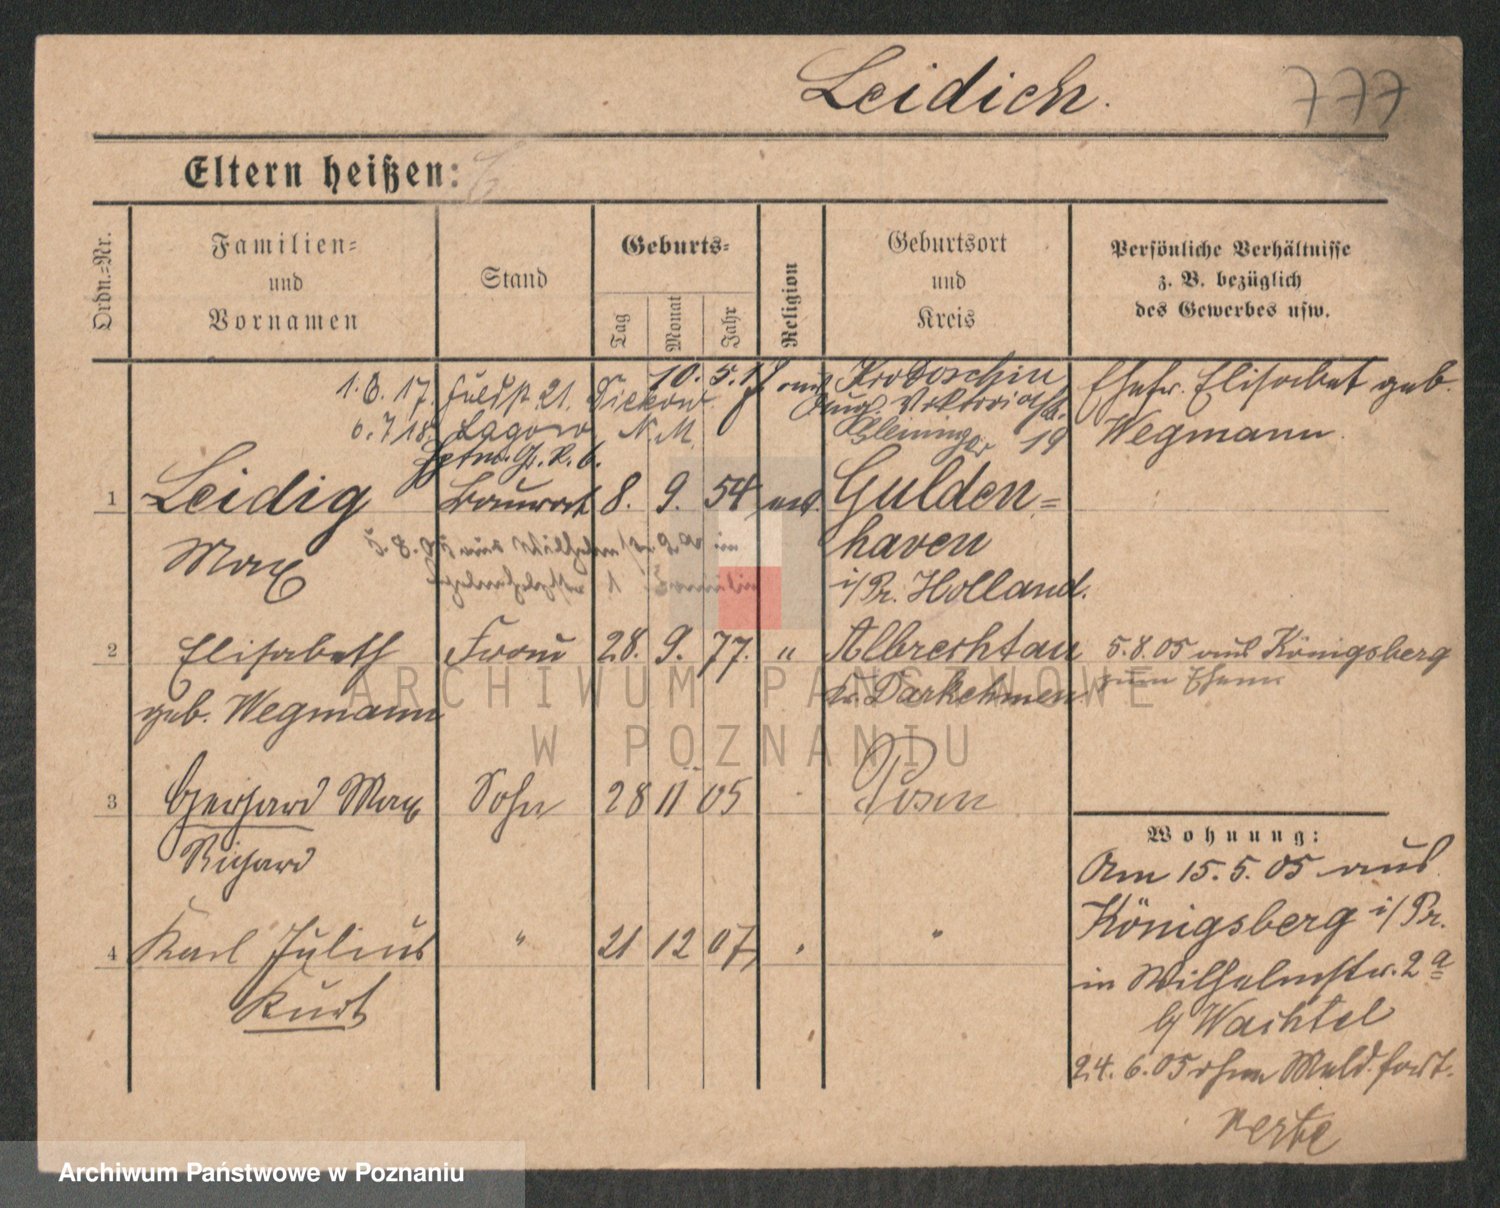 Leidich.
777
Eltern heißen:
Ordn.-Nr.
Familien- und Vornamen
Stand
Geburts-
Tag
Monat
Jahr
Religion
Geburtsort und Kreis
Persönliche Verhältnisse z. B. bezüglich des Gewerbes usw.
10. 5. 17. Krotoschin
Ehefr. Elisabet geb.
1. 6. 17. 21.
Wegmann
6. 7 18. N. M. 19
1 Leidig Baurat 8. 9. 54 ev. Gulden-
Max haven
i/Pr. Holland.
2 Elisabeth Frau 28. 9. 77. " Albrechtau 5. 8. 05 aus Königsberg
geb. Wegmann Kr. Darkehmen zum Ehem.
3 Gerhard Max Sohn 28 11 05 Posen
Richard
Wohnung:
Am 15. 5. 05 aus
Königsberg i/Pr.
4 Karl Julius " 21 12 07 "
in Wilhelmstr. 2a
Kurt
b/ Wachtel
24. 6. 05 ohne Meld. fort.
ARCHIWUM PAŃSTWOWE
W POZNANIU
Archiwum Państwowe w Poznaniu